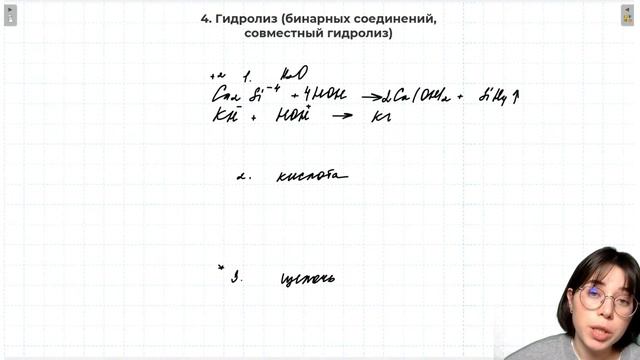 4. Гидролиз (бинарных соединений,
совместный гидролиз)
+2 1. H2O
Ca2 Si-4 + 4HOH → 2Ca(OH)2 + SiH4 ↑
KH- + HOH+ → K
2. кислота
* 3. щелочь